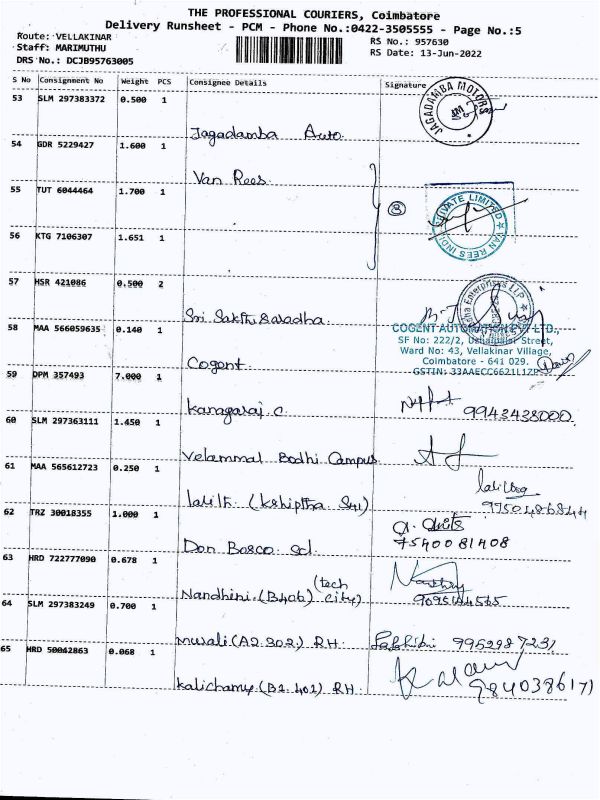 THE PROFESSIONAL COURIERS, Coimbatore
Delivery Runsheet - PCM - Phone No.:0422-3505555 - Page No.:5
Route: VELLAKINAR
Staff: MARIMUTHU
DRS No.: DCJB95763005
RS No.: 957630
RS Date: 13-Jun-2022
S No Consignment No Weight PCS Consignee Details Signature
53 SLM 297383372 0.500 1
Jagadamba Auto.
JAGADAMBA MOTORS
54 GDR 5229427 1.600 1
Van Rees
55 TUT 6044464 1.700 1
VAN REES INDIA PRIVATE LIMITED
56 KTG 7106307 1.651 1
57 HSR 421086 0.500 2
Sri Sakthi Saradha
58 MAA 566059635 0.140 1
Cogent
COGENT AUTOMATION PVT LTD.,
SF No: 222/2, Street,
Ward No: 43, Vellakinar Village,
Coimbatore - 641 029.
GSTIN: 33AAECC6621L1ZP
59 DPM 357493 7.000 1
Kanagaraj C
9943438000
60 SLM 297363111 1.450 1
Velammal Bodhi Campus
61 MAA 565612723 0.250 1
Lalith (Kshiptha Sri)
62 TRZ 30018355 1.000 1
Don Bosco Scl
7540081408
63 HRD 722777090 0.678 1
Nandhini (B406) (tech city)
64 SLM 297383249 0.700 1
Murali (A2 302) RH
9952987231
65 HRD 50042863 0.068 1
Kalichamy (B1 401) RH
9840386171